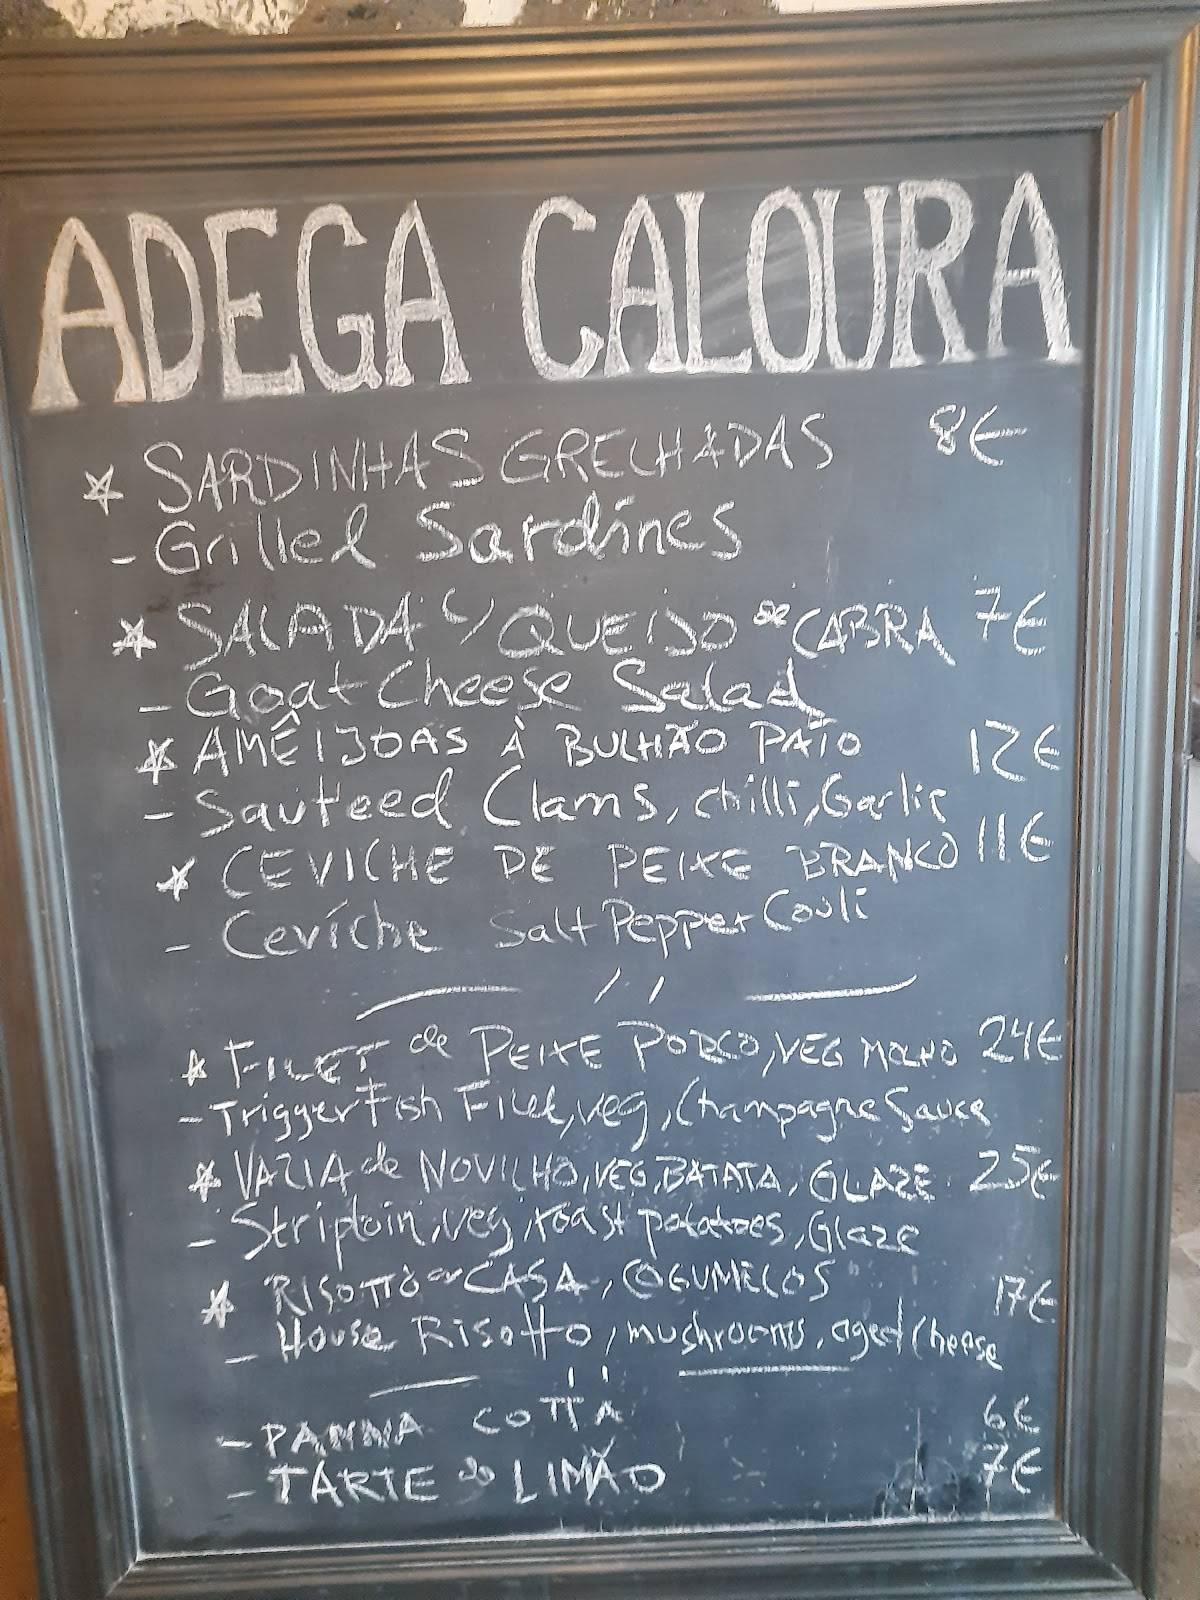 ADEGA CALOURA
SARDINHAS GRELHADAS 8€
- Grilled Sardines
SALADA C/ QUEIJO de CABRA 7€
- Goat Cheese Salad
AMÊIJOAS À BULHÃO PATO 12€
- Sauteed Clams, chilli, Garlic
CEVICHE DE PEIXE BRANCO 11€
- Ceviche Salt Pepper Couli
FILET de PEIXE PORCO, VEG MOLHO 24€
- Trigger Fish Filet, veg, Champagne Sauce
VAZIA de NOVILHO, VEG, BATATA, GLAZE 25€
- Striploin, veg, roast potatoes, Glaze
RISOTTO CASA, COGUMELOS 17€
- House Risotto, mushrooms, aged cheese
- PANNA COTTA 6€
- TARTE de LIMÃO 7€